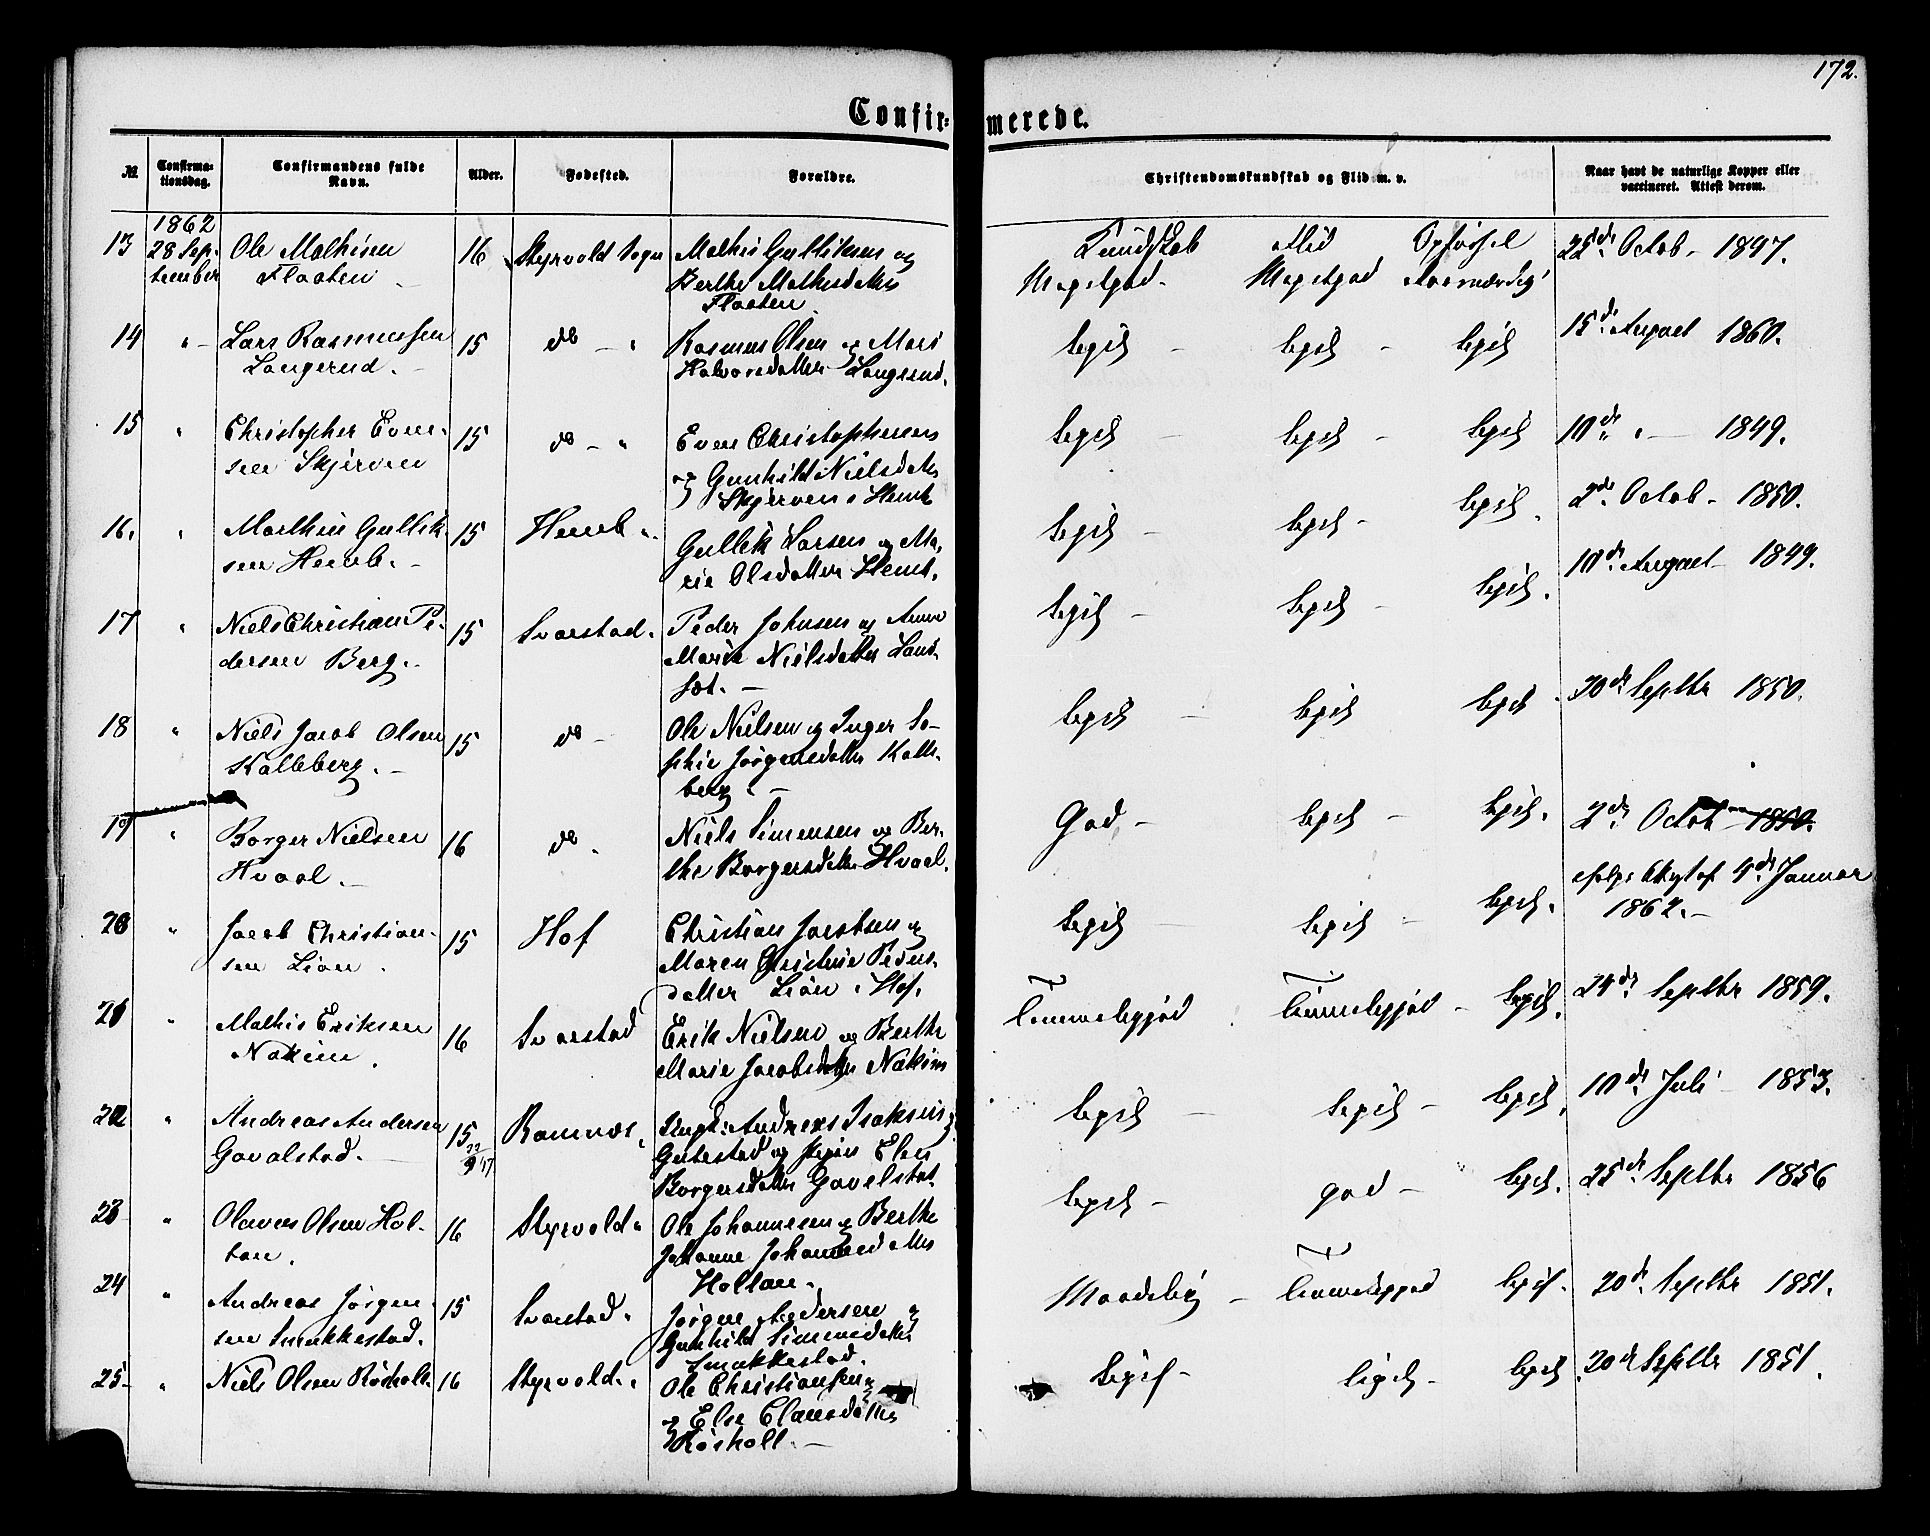 172.
Confir-merede.
№ Confirmationsdag. Confirmandens fulde Navn. Alder. Fødested. Forældre. Christendomskundskab og Flid m. v. Naar havt de naturlige Kopper eller vaccineret. Attest derom.
1862
13 28 September Ole Mathisen Flaaten 16 Styrvold Sogn Mathis Gulliksen og Berthe Mathisdatter Flaaten Kundskab Meget god. Flid Meget god Opførsel 25de Octob. 1847.
14 " Lars Rasmussen Langerud. 15 do " Rasmus Olsen og Mari Halvorsdatter Langerud. ligel. ligel. ligel. 15de August 1860.
15 " Christopher Evensen Skjerven 15 do " Even Christophersen og Gunhild Nielsdatter Skjerven i Hemb ligel. ligel. ligel. 10de " 1849.
16. " Mathis Gulliksen Hemb. 15 Hemb " Gullik Larsen og Marie Olsdatter Hemb. ligel. ligel. ligel. 2de Octob. 1850.
17 " Niels Christian Pedersen Berg. 15 Svarstad. Peder Johnsen og Anne Marie Nielsdatter ligel. ligel. ligel. 10de August 1849.
18 " Niels Jacob Olsen Kalleberg. 15 do Ole Nielsen og Inger Sophie Jørgensdatter Kalleberg. ligel. ligel. ligel. 20de Septbr 1850.
19 " Borger Nielsen Hvaal. 16 do Niels Simensen og Berthe Borgersdatter Hvaal. God ligel. ligel. 2de Octob 1850.
20 " Jacob Christiansen Lian. 15 Hof Christian Jacobsen og Maren Christine Pedersdatter Lian i Hof. ligel. ligel. ligel. 4de Januar 1862.
21 " Mathis Eriksen Nøkim. 16 Svarstad Erik Nielsen og Berthe Marie Jacobsdatter Nøkim Temmeliggod Temmeliggod ligel. 24de Septbr 1859.
22 " Andreas Andersen Gavelstad. 15 Ramnæs. Ungk: Andreas Isaksen og Pigen Elen Borgersdatter Gavelstad. ligel. ligel. ligel. 10de Juli 1853.
23 " Olaves Olsen Holtan. 16 Styrvold " Ole Johannesen og Berthe Johanne Johannesdatter Holtan. ligel. god ligel. 25de Septbr 1856
24 " Andreas Jørgensen Smukkestad. 15 Svarstad. Jørgen Andersen og Gunhild Simensdatter Smukkestad. Maadelig Temmeliggod ligel. 20de Septbr 1851.
25 " Niels Olsen Røsholt 16 Styrvold. Ole Christiansen og Else Clausdatter Røsholt. ligel. ligel. ligel. 20de Septbr 1851.